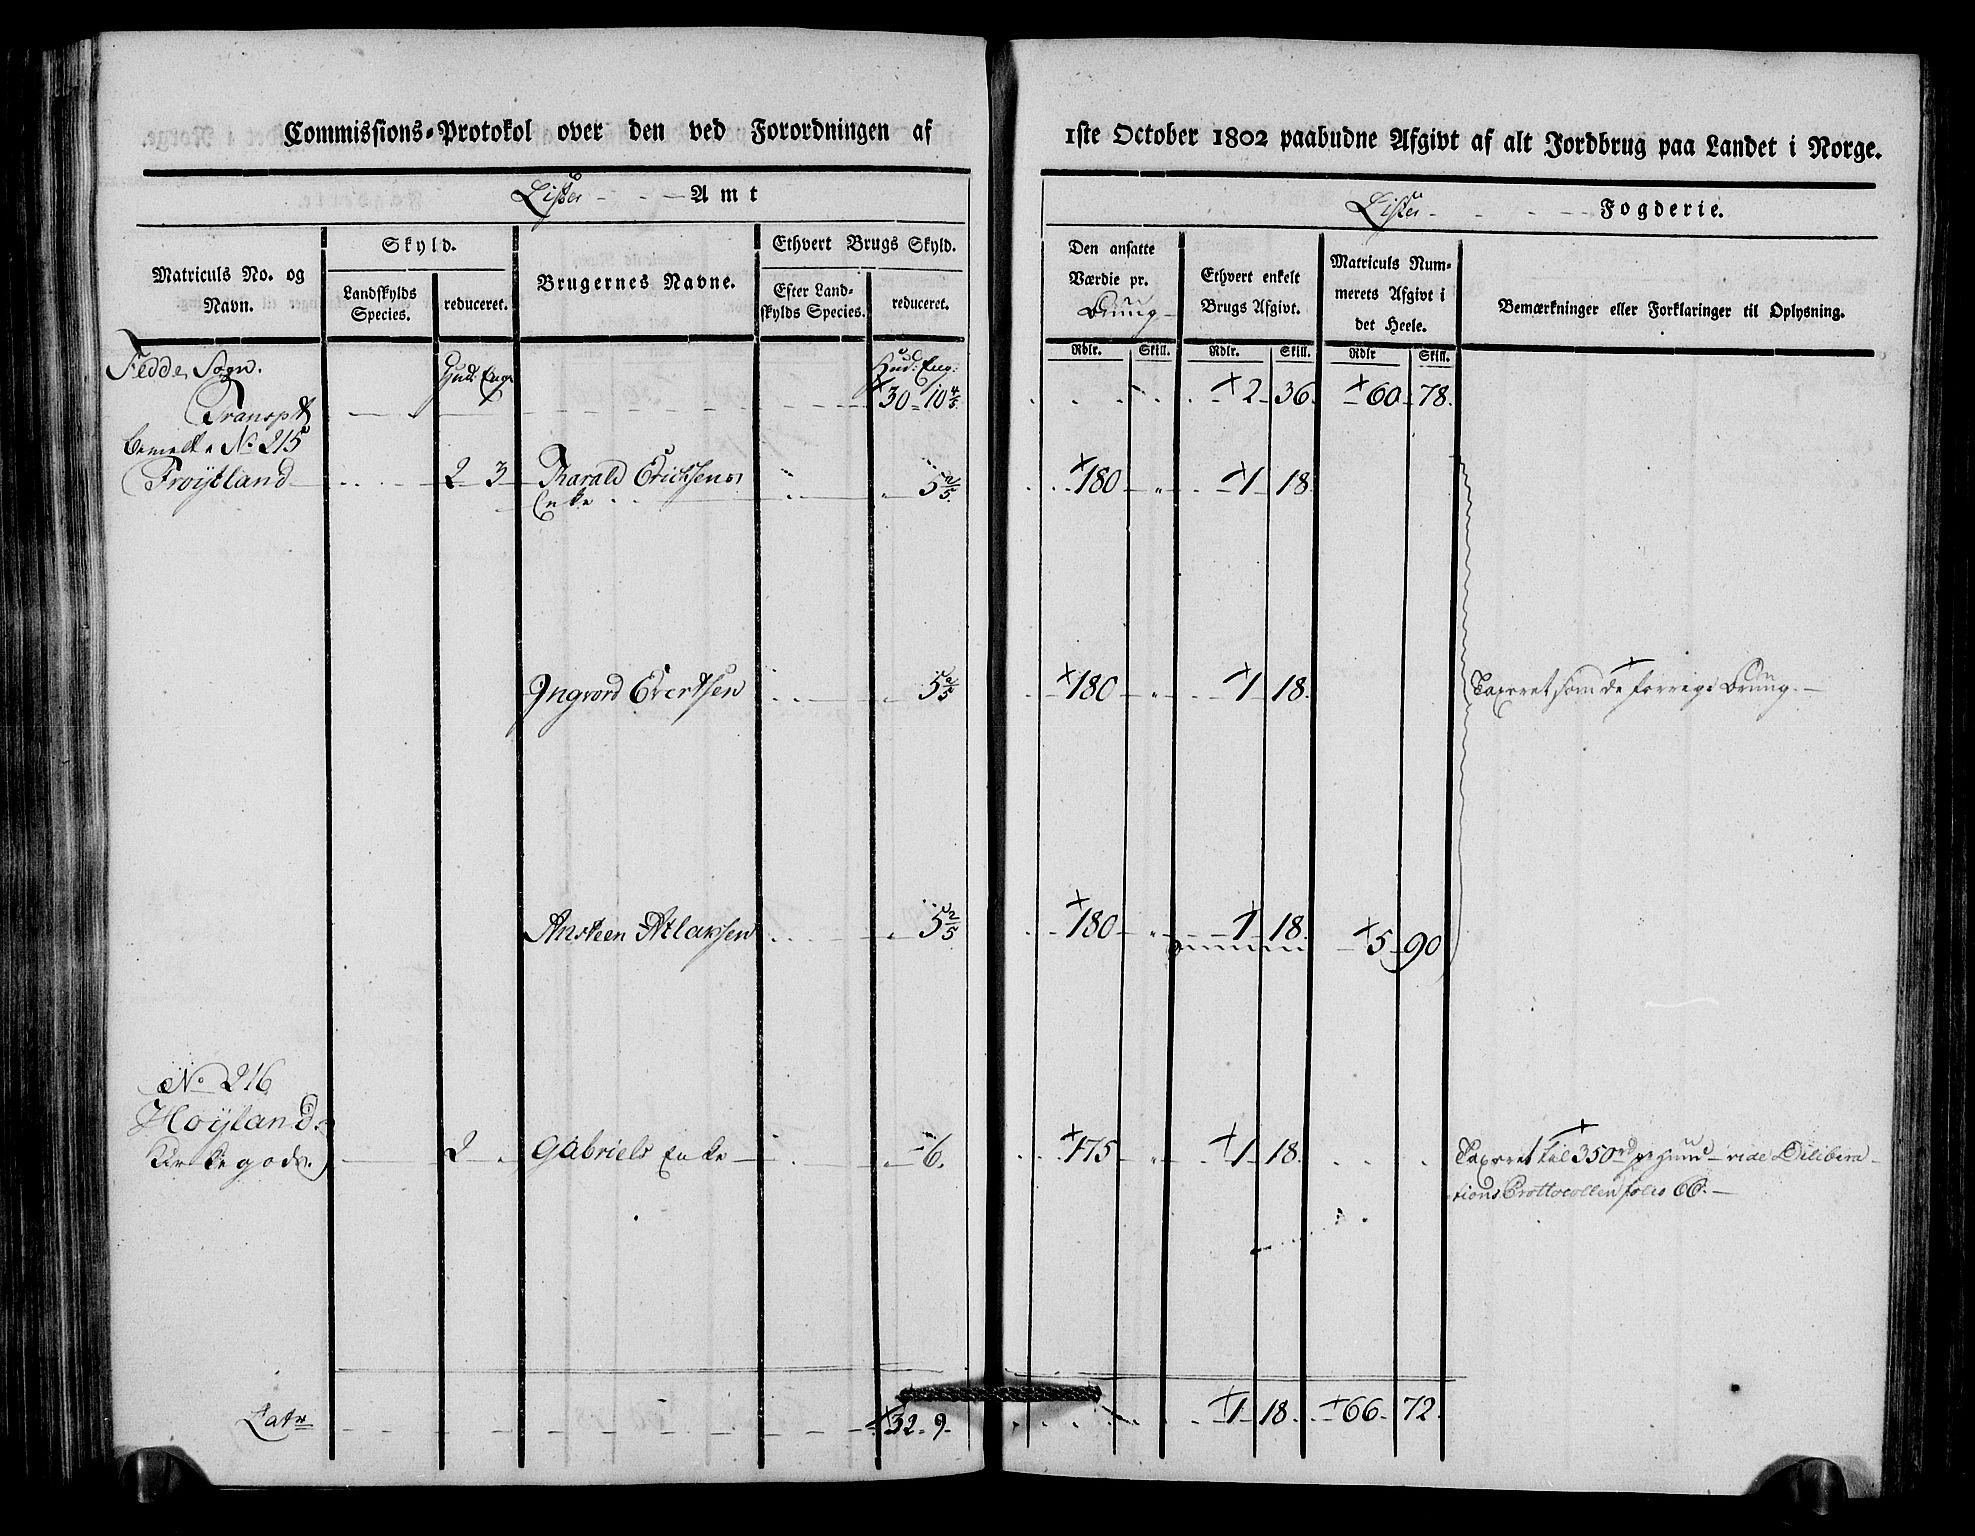 Commissions-Protokol over den ved Forordningen af
1ste October 1802 paabudne Afgivt af alt Jordbrug paa Landet i Norge.
Lister Amt
Lister Fogderie.
Matriculs No. og
Navn.
Skyld.
Landskylds
Species.
reduceret.
Brugernes Navne.
Ethvert Brugs Skyld.
Efter Land-
skylds Species.
reduceret.
Den ansatte
Værdie pr.
Ethvert enkelt
Brugs Afgivt.
Matriculs Num-
merets Afgivt i
det Heele.
Bemærkninger eller Forklaringer til Oplysning.
Rdlr. Skill. Rdlr. Skill. Rdlr Skill.
Fedde Sogn. Hud: Eng: Hud: Eng:
Transpt 30 10 4/5 2 36. 60 78.
bemelte No 215
Frøytland 2 3 Tharald Erichsens 5 2/5 180 1 18.
Enke
Ingvord Evertsen 5 2/5 180 1 18. Taxeret som de forrige
Ansteen Atlaksen 5 2/5 180 1 18. 5 90
No 216
Høyland.
Kirkegods. 2 Gabriels Enke 6. 175 1 18. Taxeret til 350rd pr hud vide Delibera-
tions Prottocollen folio 66.
Latr 32 9. 1 18. 66 72.